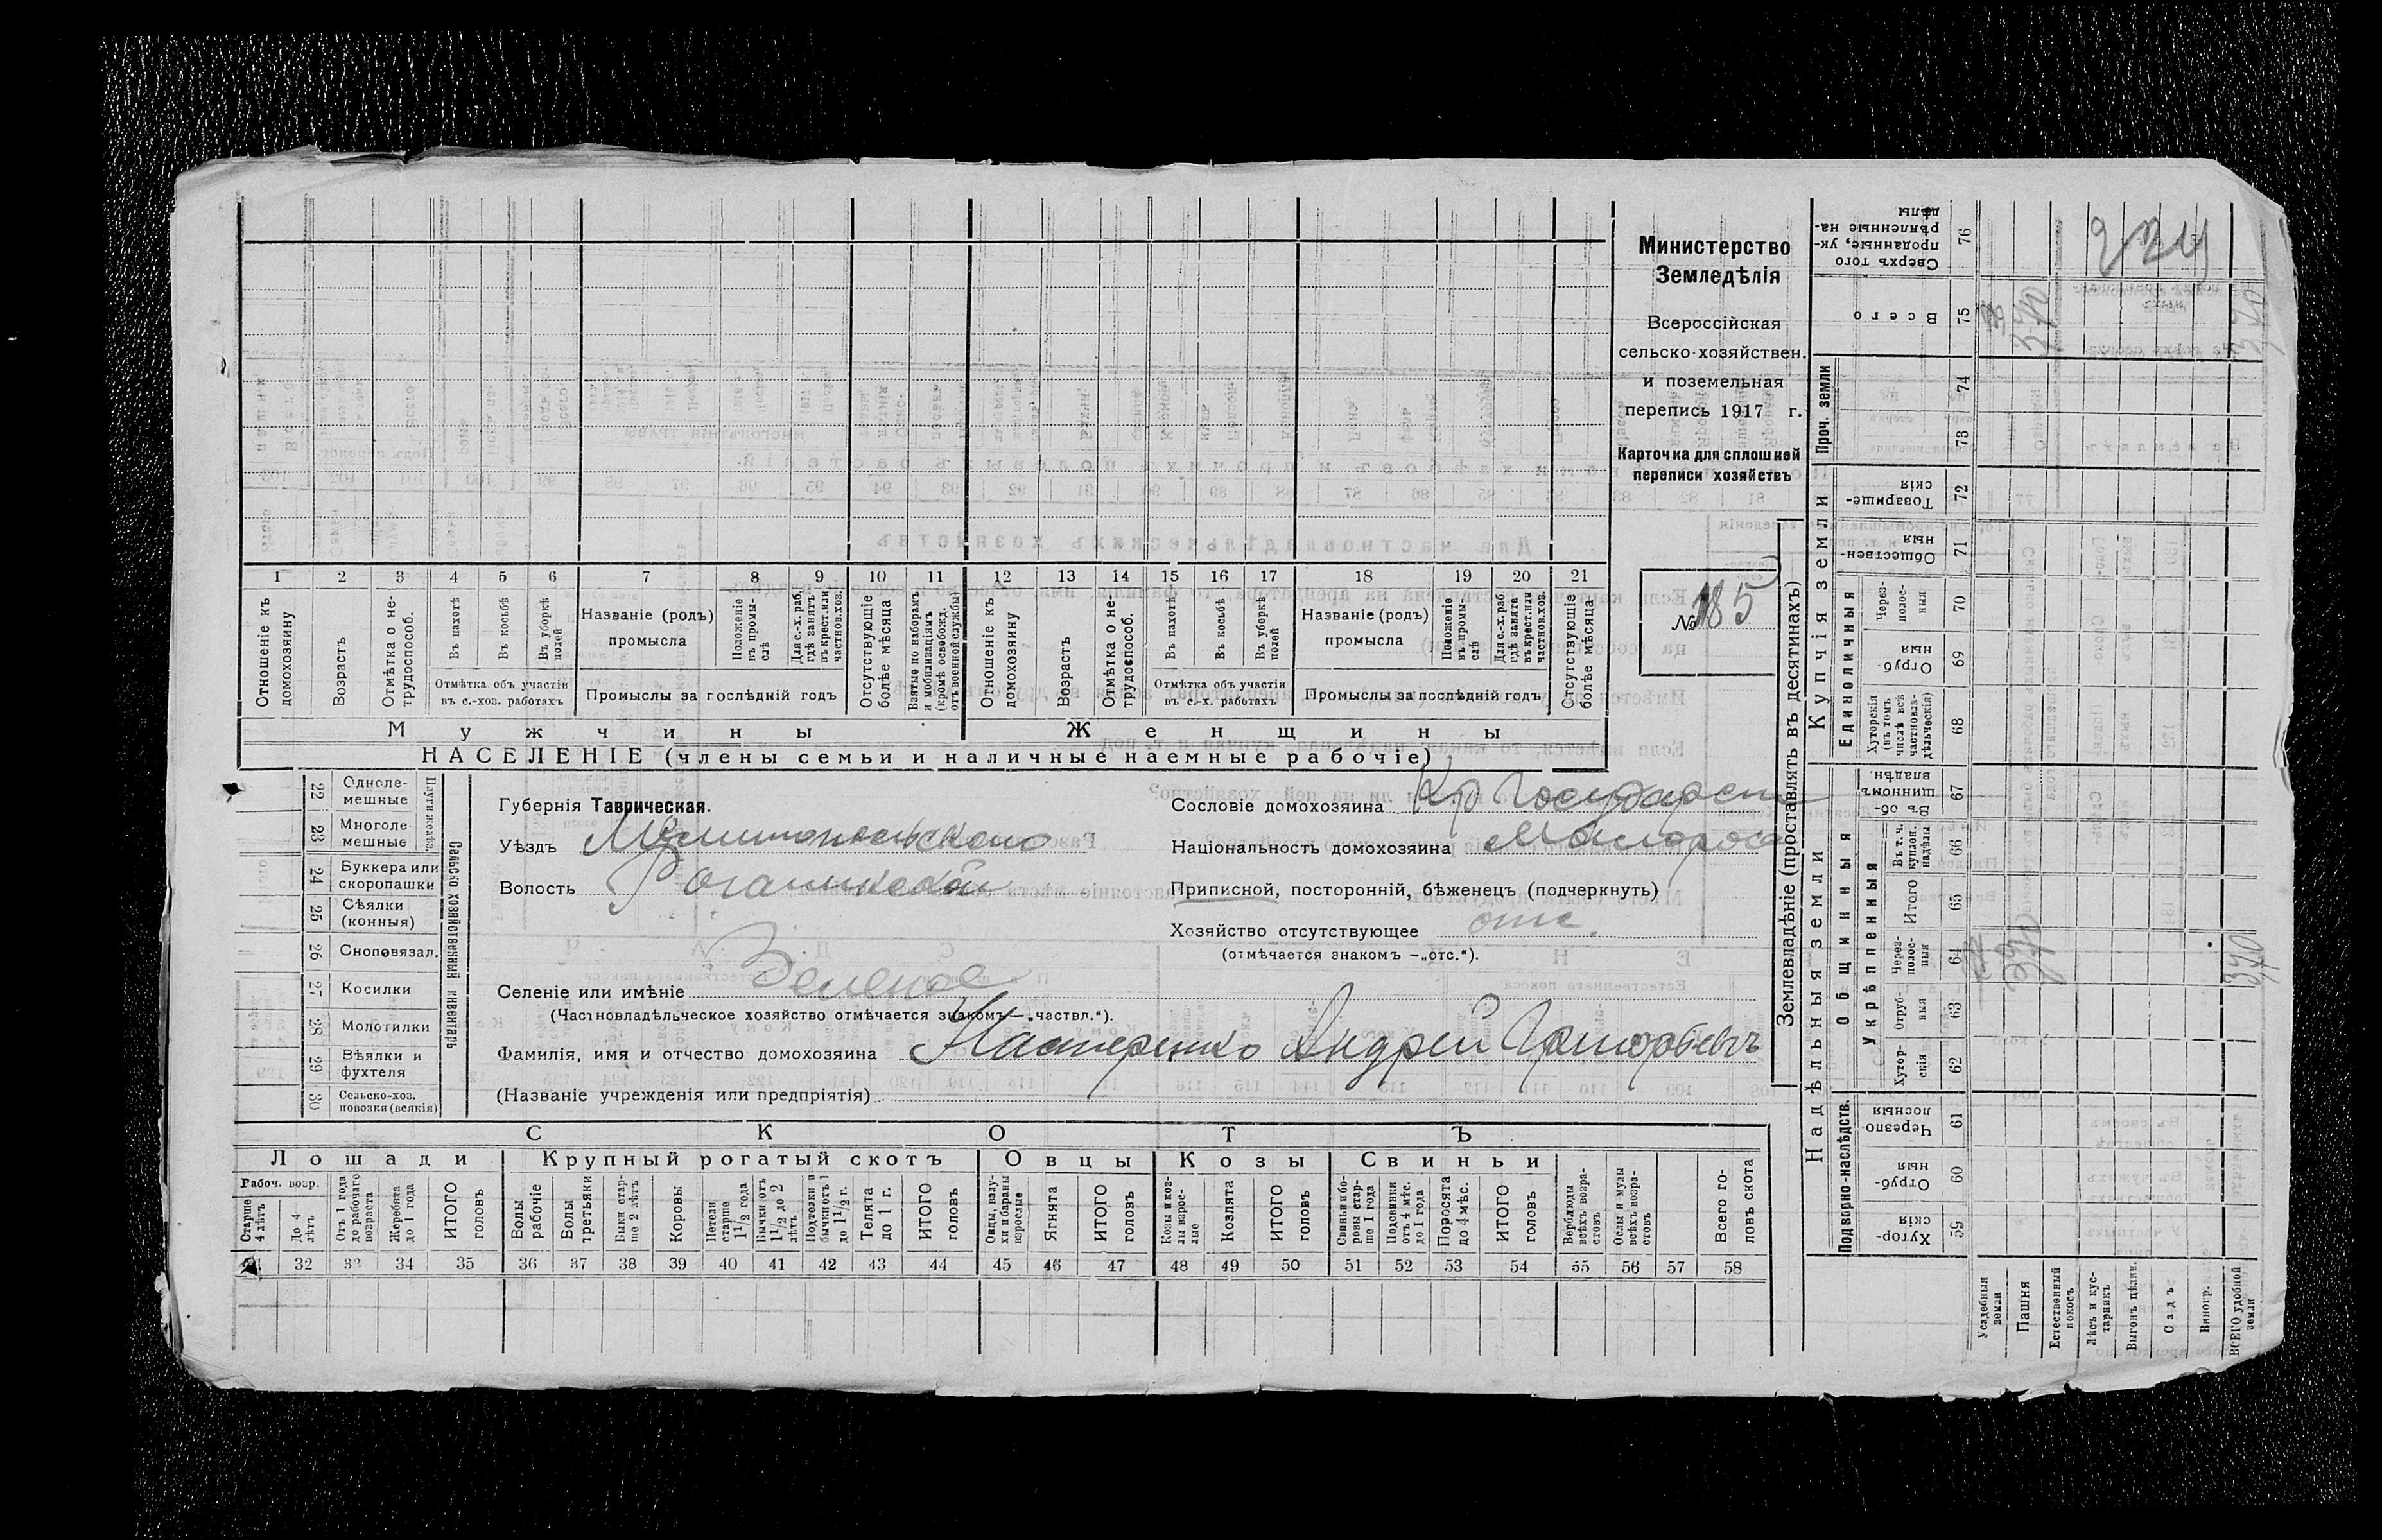 Министерство
Земледѣлія
Всероссійская
сельско-хозяйствен.
и поземельная
перепись 1917 г.
Карточка для сплошной
переписи хозяйствъ
№ 185
1 2 3 4 5 6 7 8 9 10 11 12 13 14 15 16 17 18 19 20 21
Отношеніе къ домохозяину
Возрастъ
Отмѣтка о не-трудоспособ.
Въ пахотѣ
Въ косьбѣ
Въ уборкѣ полей
Отмѣтка объ участіи въ с.-хоз. работахъ
Названіе (родъ) промысла
Положеніе въ промы-слѣ
Для с.-х. раб. гдѣ занятъ въ крест. или частнов. хоз.
Промыслы за послѣдній годъ
Отсутствующіе болѣе мѣсяца
Взятые по наборамъ и мобилизаціямъ (кромѣ освобожд. отъ военной службы)
Отношеніе къ домохозяину
Возрастъ
Отмѣтка о не-трудоспособ.
Въ пахотѣ
Въ косьбѣ
Въ уборкѣ полей
Отмѣтка объ участіи въ с.-х. работахъ
Названіе (родъ) промысла
Положеніе въ промы-слѣ
Для с.-х. раб. гдѣ занята въ крест. или частнов. хоз.
Промыслы за послѣдній годъ
Отсутствующіе болѣе мѣсяца
Мужчины Женщины
НАСЕЛЕНІЕ (члены семьи и наличные наемные рабочіе)
Сельско хозяйственный инвентарь
Плуги желѣз.
22 Одноле-мешные
23 Многоле мешные
24 Буккера или скоропашки
25 Сѣялки (конныя)
26 Сноповязал.
27 Косилки
28 Молотилки
29 Вѣялки и фухтеля
30 Сельско-хоз. повозки (всякія)
Губернія Таврическая.
Уѣздъ Мелитопольскаго
Волость Рогачикской
Селеніе или имѣніе Зеленое
(Частновладѣльческое хозяйство отмѣчается знакомъ—„частвл.“).
Фамилія, имя и отчество домохозяина Настеренко Андрей Григорьевъ
(Названіе учрежденія или предпріятія)
Сословіе домохозяина Кр Государств
Національность домохозяина Малорос
Приписной, посторонній, бѣженецъ (подчеркнуть)
Хозяйство отсутствующее отс.
(отмѣчается знакомъ —„отс.“).
СКОТЪ
Лошади Крупный рогатый скотъ Овцы Козы Свиньи
Рабоч. возр.
Старше 4 лѣтъ
До 4 лѣтъ
Отъ 1 года до рабочаго возраста
Жеребята до 1 года
ИТОГО головъ
Волы рабочіе
Волы третьяки
Быки стар-ше 2 лѣтъ
Коровы
Нетели старше 1 1/2 года
Бычки отъ 1 1/2 до 2 лѣтъ
Подтелки и бычки отъ 1 до 1 1/2 г.
Телята до 1 г.
ИТОГО головъ
Овцы, валу-хи и бараны взрослые
Ягнята
ИТОГО головъ
Козы и коз-лы взрос-лые
Козлята
ИТОГО головъ
Свиньи и бо-ровы стар-ше 1 года
Подсвинки отъ 4 мѣс. до 1 года
Поросята до 4 мѣс.
ИТОГО головъ
Верблюды всѣхъ возра-стовъ
Ослы и мулы всѣхъ возра-стовъ
Всего го-ловъ скота
31 32 33 34 35 36 37 38 39 40 41 42 43 44 45 46 47 48 49 50 51 52 53 54 55 56 57 58
Землевладѣніе (проставлять въ десятинахъ)
Надѣльныя земли Купчія земли Проч. земли
Подворно-наслѣдств.
Общинныя
Укрѣпленныя
Единоличныя
59 Хутор-скія
60 Отруб-ныя
61 Черезпо-лосныя
62 Хутор-скія
63 Отруб-ныя
64 Через-полос-ныя
65 Итого
66 Въ т. ч. куплен. надѣлы
67 Въ об-щинномъ владѣн.
68 Хуторскія (въ томъ числѣ всѣ частновла-дѣльческія)
69 Отруб-ныя
70 Через-полос-ныя
71 Обществен-ныя
72 Товарище-скія
73
74
75 Всего
76 Сверхъ того проданные, ук-рѣпленные на-дѣлы
Усадебныя земли
Пашня 370 370
Естественный покосъ
Лѣсъ и кус-тарникъ
Выгонъ цѣлин.
Садъ
Виногр.
ВСЕГО удобной земли 370 370
224